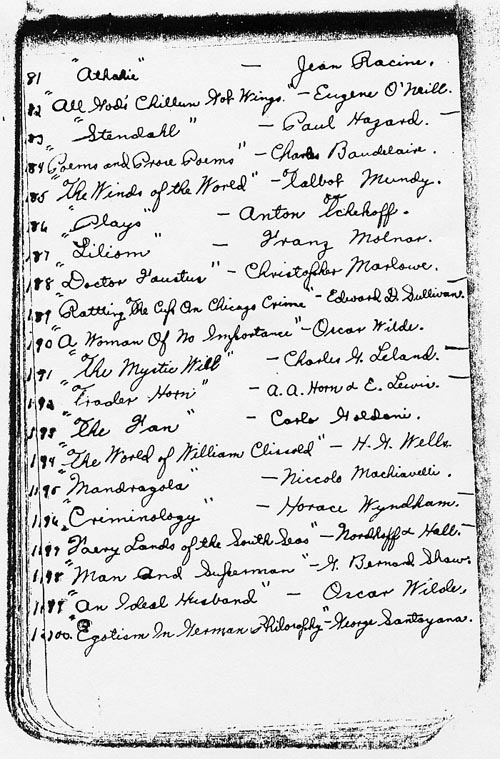 81 "Athalie" — Jean Racine.
82 "All God's Chillun Got Wings." — Eugene O'Neill.
83 "Stendahl" — Paul Hazard.
84 "Poems and Prose Poems" — Charles Baudelaire.
185 "The Winds of the World" — Talbot Mundy.
186 "Plays" — Anton Tchekoff.
187 "Liliom" — Franz Molnar.
188 "Doctor Faustus" — Christopher Marlowe.
189 "Rattling The Cup On Chicago Crime" — Edward D. Sullivan.
190 "A Woman Of No Importance" — Oscar Wilde.
191 "The Mystic Will" — Charles G. Leland.
192 "Trader Horn" — A. A. Horn & E. Lewis.
193 "The Fan" — Carlo Goldoni.
194 "The World of William Clissold" — H. G. Wells.
195 "Mandragola" — Niccolo Machiavelli.
196 "Criminology" — Horace Wyndham.
197 "Faery Lands of the South Seas" — Nordhoff & Hall.
198 "Man and Superman" — G. Bernard Shaw.
199 "An Ideal Husband" — Oscar Wilde.
200. "Egotism In German Philosophy" — George Santayana.